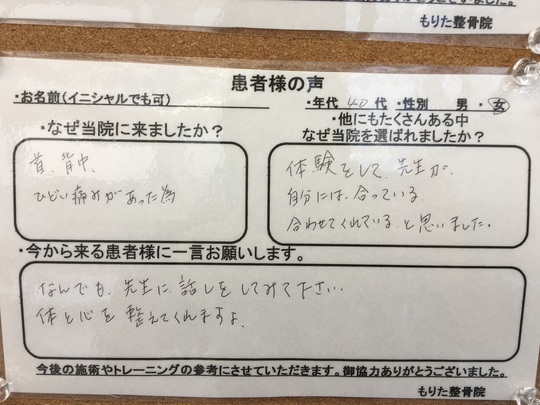 もりた整骨院
患者様の声
・お名前(イニシャルでも可)
・年代 40代 ・性別 男・女
・なぜ当院に来ましたか?
首、背中、
ひどい痛みがあった為
・他にもたくさんある中
なぜ当院を選ばれましたか?
体験をして、先生が、
自分には、合っている、
合わせてくれている、と思いました。
・今から来る患者様に一言お願いします。
なんでも、先生に、話しをしてみて下さい…
体と心を整えてくれますよ。
今後の施術やトレーニングの参考にさせていただきます。御協力ありがとうございました。
もりた整骨院